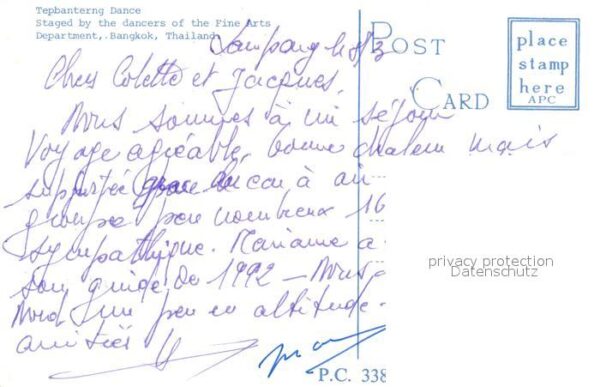 Tepbanterng Dance
Staged by the dancers of the Fine Arts
Department, Bangkok, Thailand
POST CARD
place
stamp
here
APC
le 8/3
Chers Colette et Jacques,
Nous sommes à mi séjour
Voyage agréable, bonne chaleur mais
supportée à un
groupe peu nombreux 16
sympathique. Marianne a
son guide de 1992 - Nous
Nord un peu en altitude.
amitiés
privacy protection
Datenschutz
P.C. 338